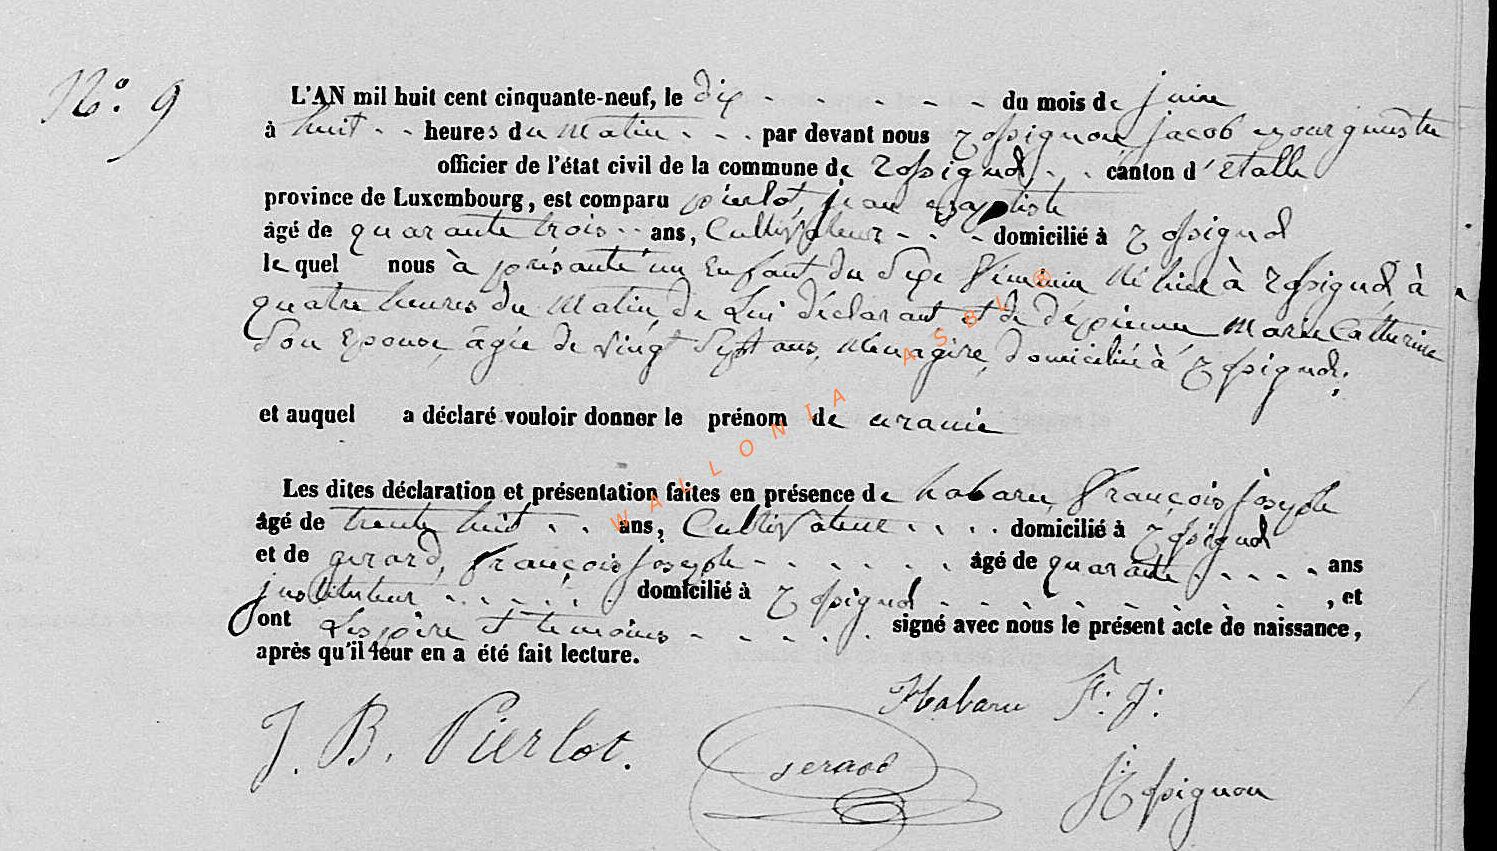 N.° 9
L'AN mil huit cent cinquante-neuf, le dix - - - - - - du mois de juin
à huit - - heures du matin - - - par devant nous rossignon jacob bourguestre
officier de l'état civil de la commune de rossignol - - canton d'étalle
province de Luxembourg, est comparu pierlot, jean baptiste
âgé de quarante trois - - ans, Cultivateur - - - domicilié à rossignol
lequel nous à présanté un Enfant du Sexe féminin né hier à rossignol à
quatre heures du matin, de Lui déclarant et de marie Catherine
Son Epouse âgée de vingt Sept ans, ménagère, domiciliée à rossignol;
et auquel a déclaré vouloir donner le prénom de uranie
Les dites déclaration et présentation faites en présence de habaru, françois joseph
âgé de trente huit - - ans, Cultivateur - - - - domicilié à rossignol
et de girard, françois joseph - - - - - - - âgé de quarante - - - - - ans
instituteur - - - - - - domicilié à rossignol - - - - - - - - - , et
ont Les père et temoins - - - - - signé avec nous le présent acte de naissance,
après qu'il leur en a été fait lecture.
Habaru F. J.
J. B. Pierlot.
gerard
J. rossignon
WALLONIA ASBL ®